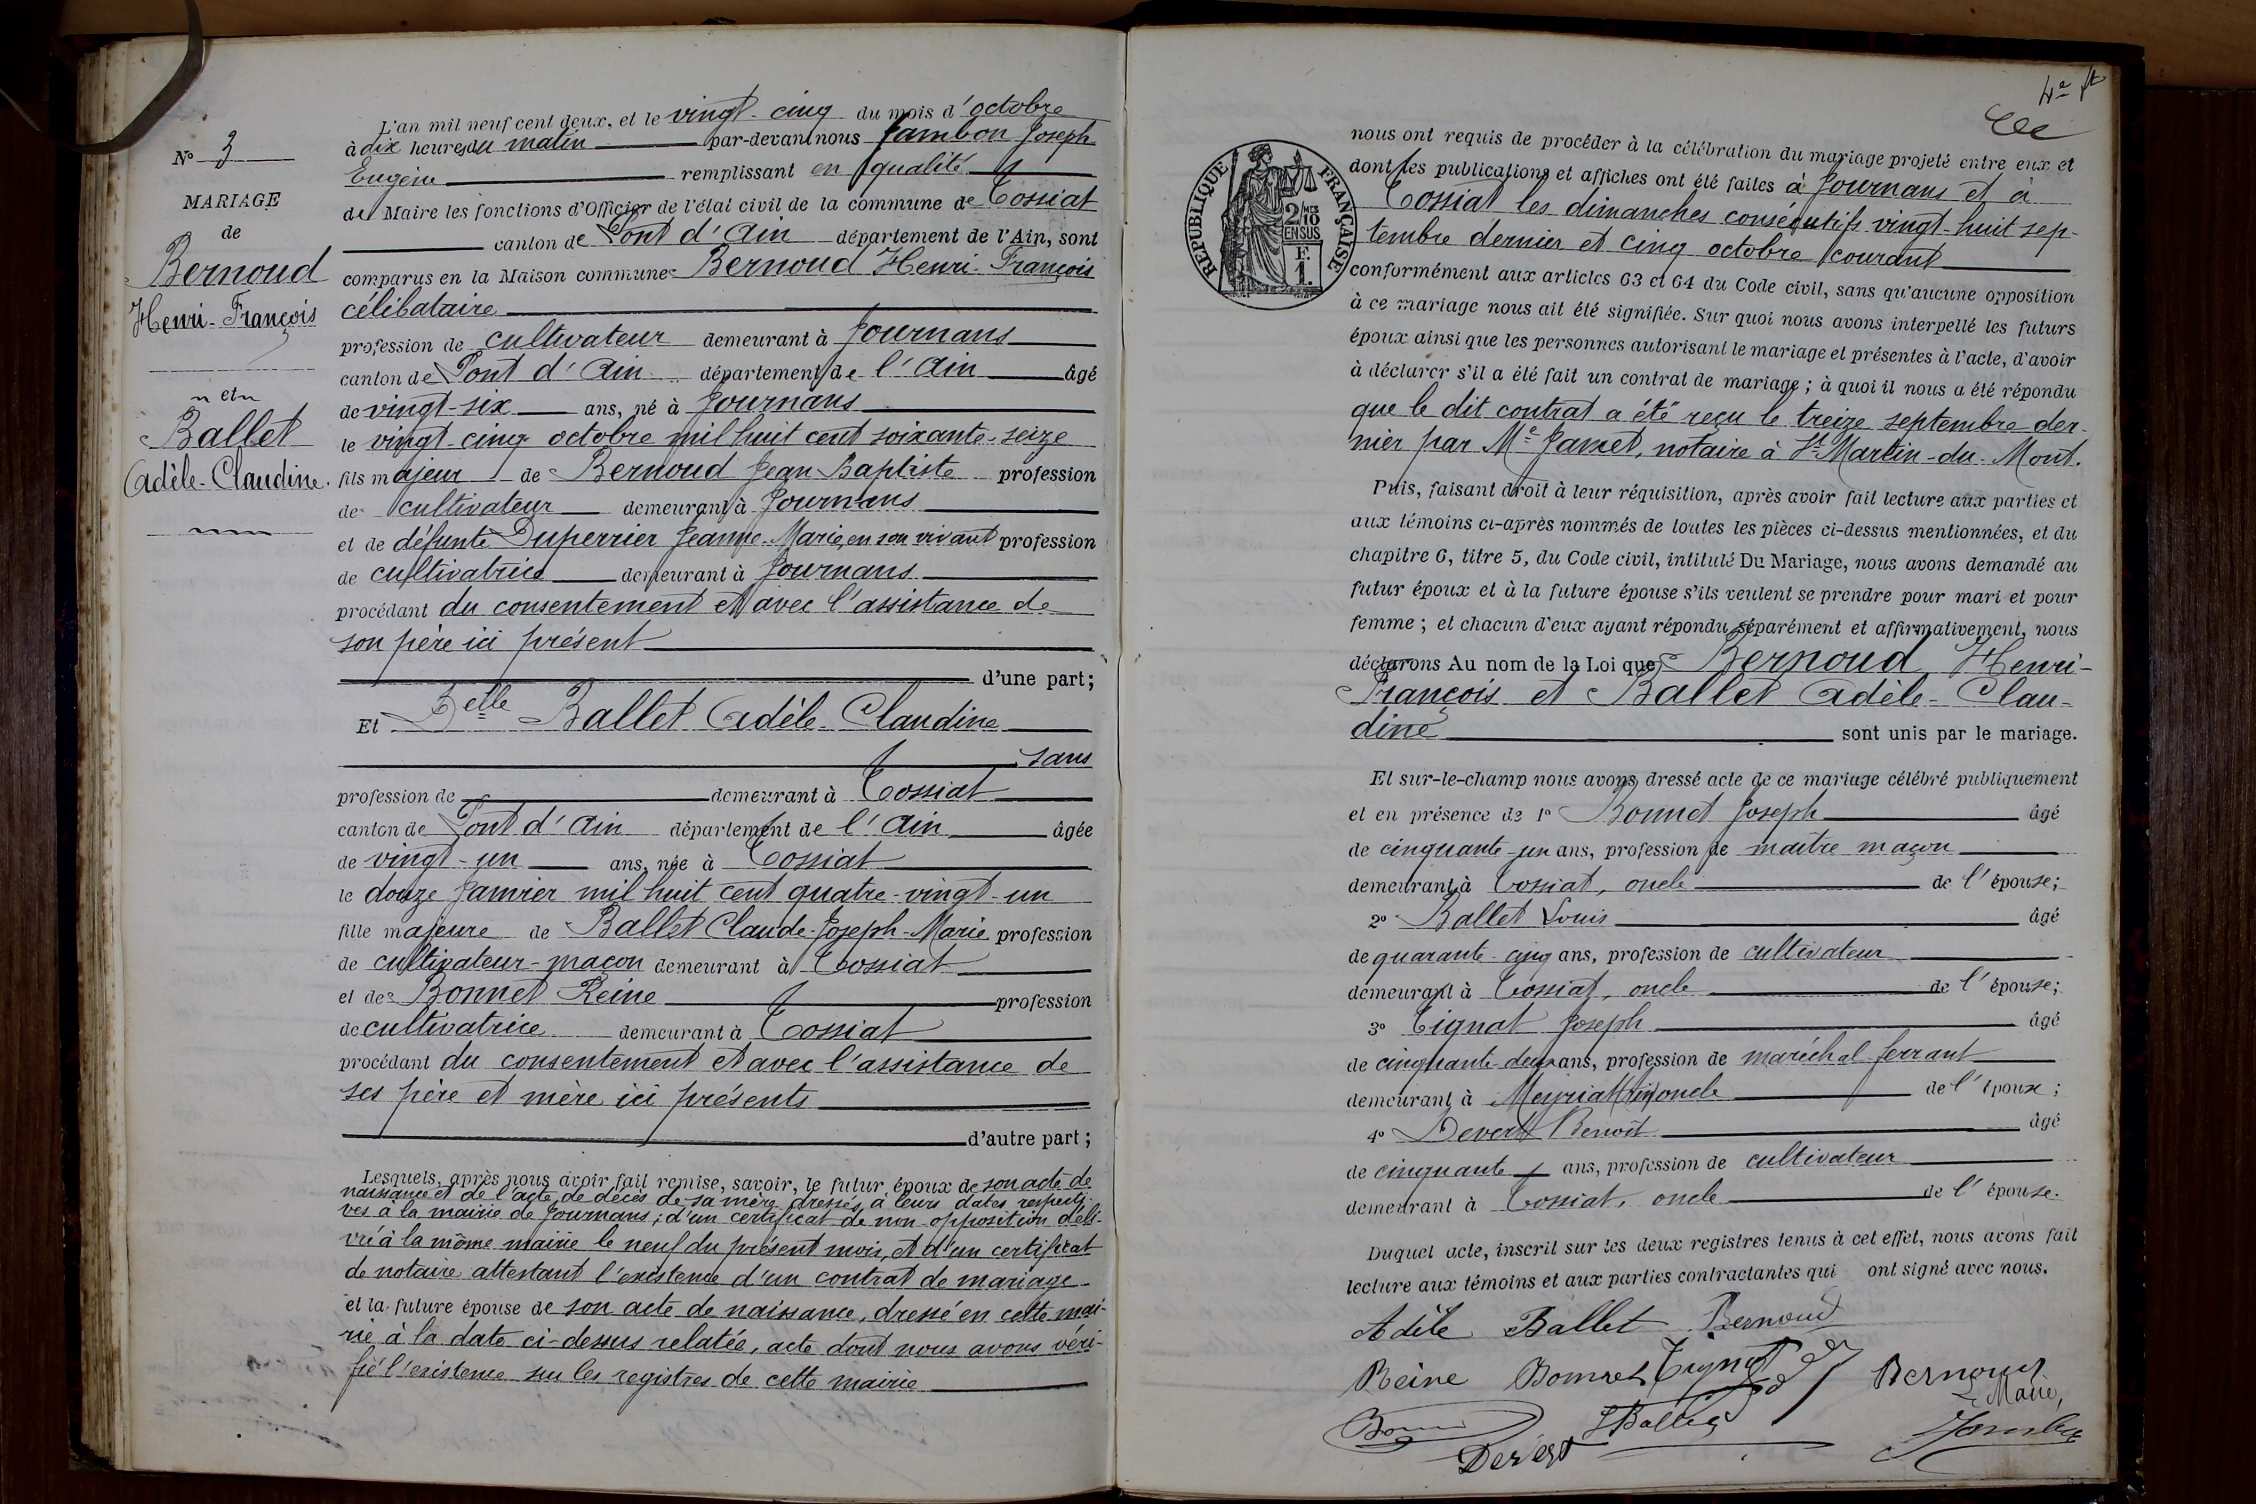 N° 3
MARIAGE
de
Bernoud
Henri-François
et
Ballet
Adèle-Claudine.
L'an mil neuf cent deux, et le vingt-cinq du mois d'octobre
à dix heures du matin par-devant nous Jambon Joseph
Eugène remplissant en qualité
de Maire les fonctions d'Officier de l'état civil de la commune de Tossiat
canton de Pont d'Ain département de l'Ain, sont
comparus en la Maison commune Bernoud Henri-François
célibataire
profession de cultivateur demeurant à Journans
canton de Pont d'Ain département de l'Ain âgé
de vingt-six ans, né à Journans
le vingt-cinq octobre mil huit cent soixante-seize
fils majeur de Bernoud Jean-Baptiste profession
de cultivateur demeurant à Journans
et de défunte Duperrier Jeanne-Marie, en son vivant profession
de cultivatrice demeurant à Journans
procédant du consentement et avec l'assistance de
son père ici présent
d'une part;
Et Delle Ballet Adèle-Claudine
sans
profession de demeurant à Tossiat
canton de Pont d'Ain département de l'Ain âgée
de vingt-un ans, née à Tossiat
le douze Janvier mil huit cent quatre-vingt-un
fille majeure de Ballet Claude-Joseph-Marie profession
de cultivateur-maçon demeurant à Tossiat
et de Bonnet Reine profession
de cultivatrice demeurant à Tossiat
procédant du consentement et avec l'assistance de
ses père et mère ici présents
d'autre part;
Lesquels, après nous avoir fait remise, savoir, le futur époux de son acte de
naissance et de l'acte de décès de sa mère dressés à leurs dates respecti-
ves à la mairie de Journans; d'un certificat de non-opposition déli-
vré à la même mairie le neuf du présent mois, et d'un certificat
de notaire attestant l'existence d'un contrat de mariage
et la future épouse de son acte de naissance, dressé en cette mai-
rie à la date ci-dessus relatée, acte dont nous avons véri-
fié l'existence sur les registres de cette mairie
4e ft
RÉPUBLIQUE FRANÇAISE
2/10 MES
EN SUS
F.
1.
nous ont requis de procéder à la célébration du mariage projeté entre eux et
dont les publications et affiches ont été faites à Journans et à
Tossiat les dimanches consécutifs vingt-huit sep-
tembre dernier et cinq octobre courant
conformément aux articles 63 et 64 du Code civil, sans qu'aucune opposition
à ce mariage nous ait été signifiée. Sur quoi nous avons interpellé les futurs
époux ainsi que les personnes autorisant le mariage et présentes à l'acte, d'avoir
à déclarer s'il a été fait un contrat de mariage; à quoi il nous a été répondu
que le dit contrat a été reçu le treize septembre der-
nier par Me Jamet, notaire à St Martin-du-Mont.
Puis, faisant droit à leur réquisition, après avoir fait lecture aux parties et
aux témoins ci-après nommés de toutes les pièces ci-dessus mentionnées, et du
chapitre 6, titre 5, du Code civil, intitulé Du Mariage, nous avons demandé au
futur époux et à la future épouse s'ils veulent se prendre pour mari et pour
femme; et chacun d'eux ayant répondu séparément et affirmativement, nous
déclarons Au nom de la Loi que Bernoud Henri-
François et Ballet Adèle-Clau-
dine sont unis par le mariage.
Et sur-le-champ nous avons dressé acte de ce mariage célébré publiquement
et en présence de 1° Bonnet Joseph âgé
de cinquante-un ans, profession de maître maçon
demeurant à Tossiat, oncle de l'épouse;
2° Ballet Louis âgé
de quarante-cinq ans, profession de cultivateur
demeurant à Tossiat, oncle de l'épouse;
3° Tignat Joseph âgé
de cinquante-deux ans, profession de maréchal-ferrant
demeurant à Meyriat (Ain) oncle de l'époux;
4° Devert Benoît âgé
de cinquante ans, profession de cultivateur
demeurant à Tossiat, oncle de l'épouse.
Duquel acte, inscrit sur les deux registres tenus à cet effet, nous avons fait
lecture aux témoins et aux parties contractantes qui ont signé avec nous.
Adèle Ballet Bernoud
Reine Bonnet Tignat Bernoud
Le Maire,
LBallet Jambon
Devert